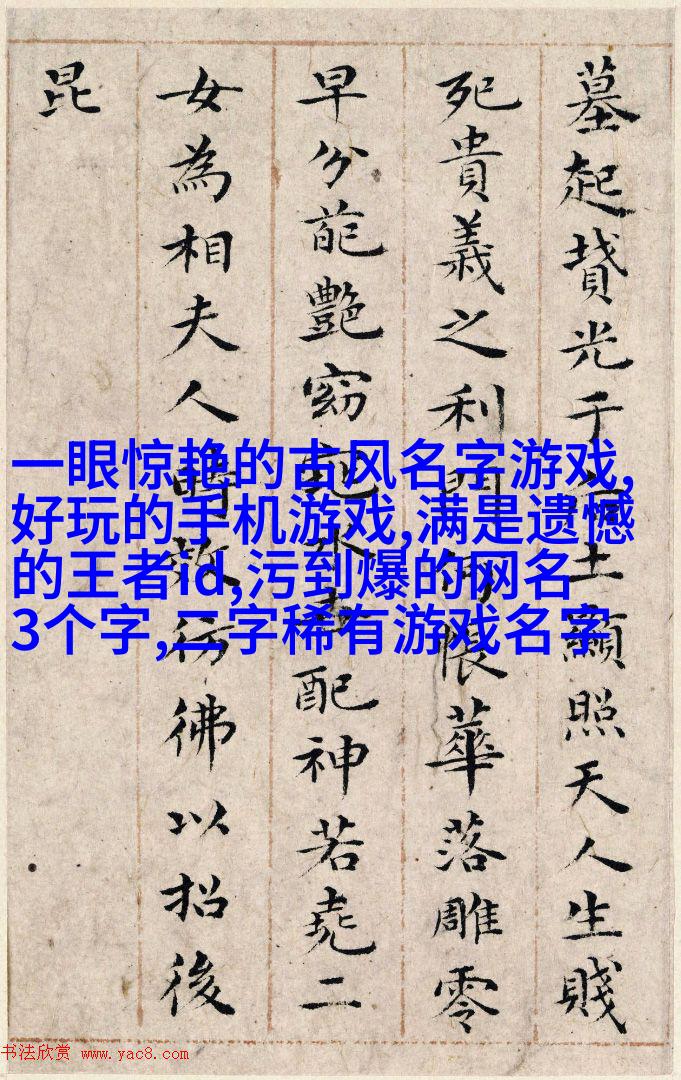 墓起墳光于后土顯照天人生賤
死貴義之利門何悵華落雕零
早分葩艷窈窕永世配神若堯二
女為相夫人時效彷彿以招後
昆
一眼惊艳的古风名字游戏,
好玩的手机游戏,满是遗憾
的王者id,污到爆的网名
3个字,二字稀有游戏名字
书法欣赏 www.yac8.com